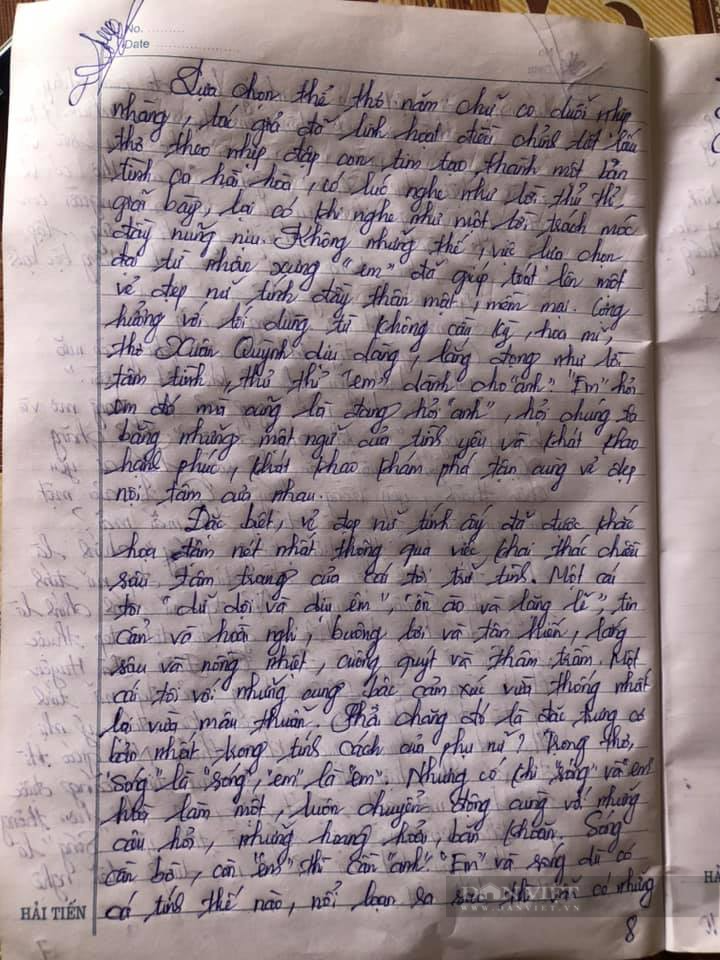 No.
Date
Lựa chọn thể thơ năm chữ co duỗi nhịp
nhàng, tác giả đã linh hoạt điều chỉnh tốt câu
thơ theo nhịp đập con tim tạo thành một bản
tình ca hài hòa, có lúc nghe như lời thủ thỉ
giãi bày, lại có khi nghe như một lời trách móc
đầy nũng nịu. Không những thế, việc lựa chọn
đại từ nhân xưng "em" đã giúp toát lên một
vẻ đẹp nữ tính đầy thân mật, mềm mại. Cộng
hưởng với lối dùng từ không cầu kỳ, hoa mĩ,
thơ Xuân Quỳnh dịu dàng, lắng đọng như lời
tâm tình, thủ thỉ "em" dành cho "anh". "Em" hỏi
em đó mà cũng là đang hỏi "anh", hỏi chúng ta
bằng những mật ngữ của tình yêu và khát khao
hạnh phúc, khát khao khám phá tận cùng vẻ đẹp
nội tâm của nhau.
Đặc biệt, vẻ đẹp nữ tính ấy đã được khắc
họa đậm nét nhất thông qua việc khai thác chiều
sâu tâm trạng của cái tôi trữ tình. Một cái
tôi "dữ dội và dịu êm", "ồn ào và lặng lẽ", tin
cẩn và hoài nghi, buông lơi và tận hiến, lắng
sâu và nồng nhiệt, cuồng quýt và thâm trầm. Một
cái tôi với những cung bậc cảm xúc vừa thống nhất
lại vừa mâu thuẫn. Phải chăng đó là đặc trưng cơ
bản nhất trong tính cách của phụ nữ? Trong thơ,
"sóng" là "sóng", "em" là "em". Nhưng có khi "sóng" và "em"
hòa làm một, luôn chuyển động cùng với những
câu hỏi, những hoang hoải, băn khoăn. Sóng
cần bờ, còn "em" thì cần "anh". "Em" và sóng dù có
cá tính thế nào, nổi loạn ra sao thì vẫn có những
HẢI TIẾN
8
DANVIET
WWW.DANVIET.VN